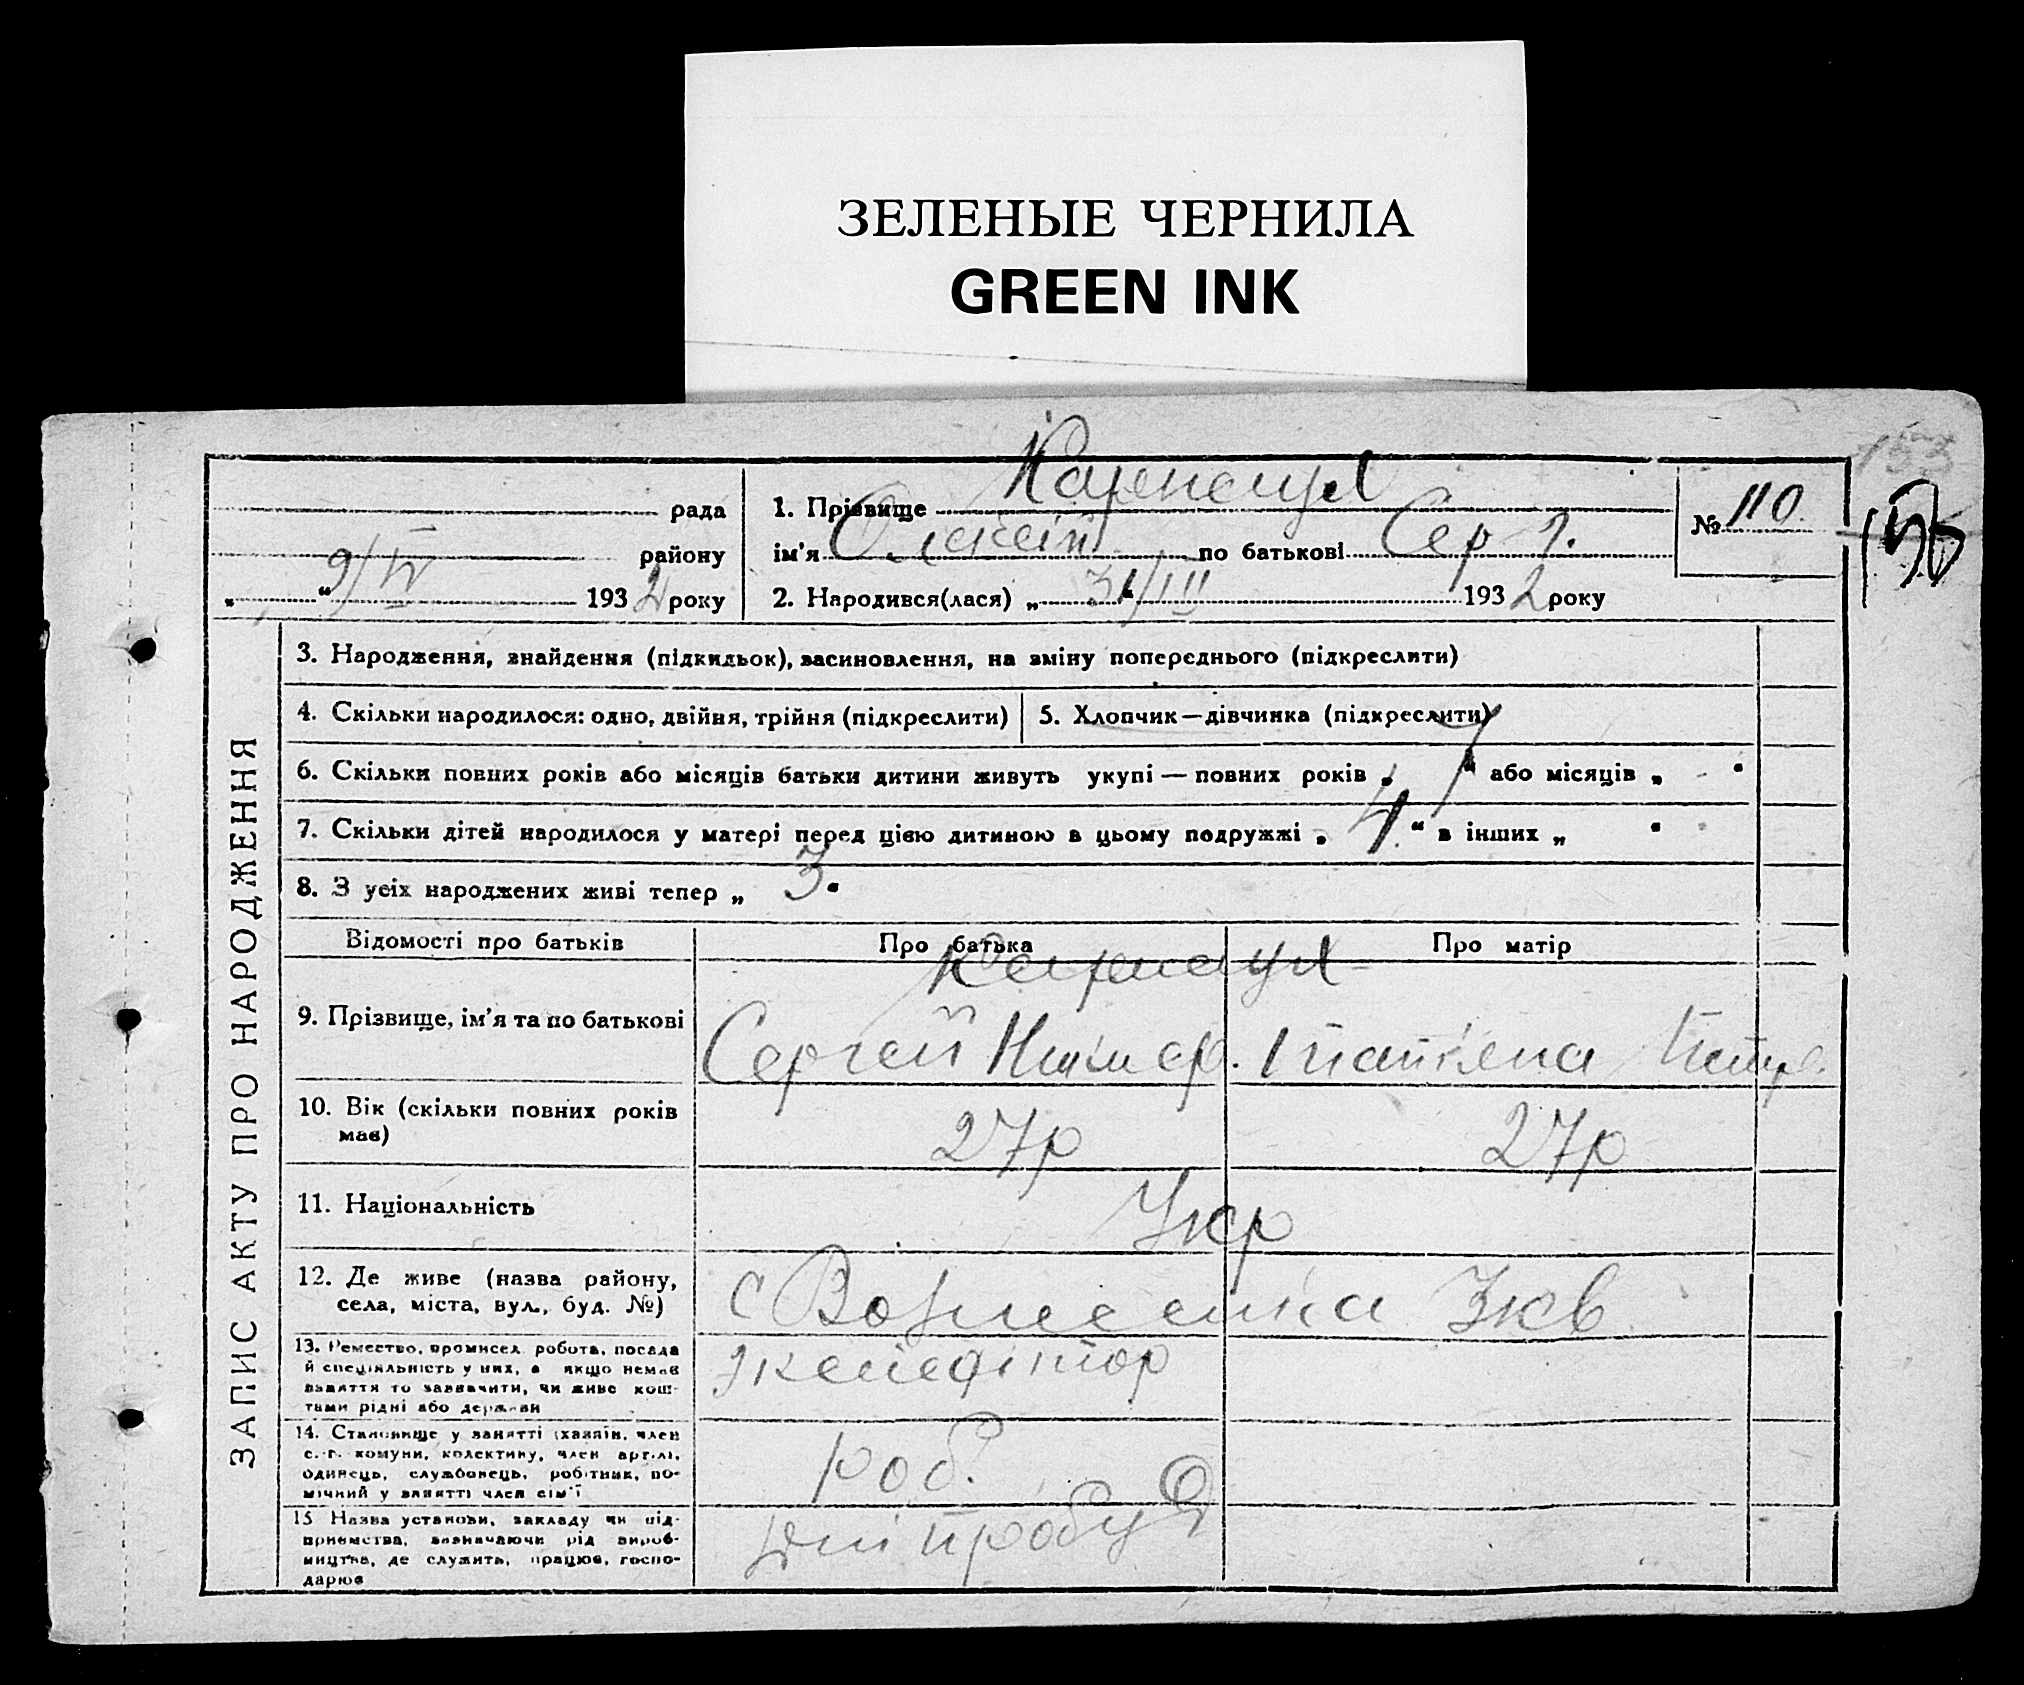 ЗЕЛЕНЫЕ ЧЕРНИЛА
GREEN INK
153
рада
району
„ “ 9/IV 1932 року
1. Прізвище
ім’я Олексій по батькові Сер г.
2. Народився(лася) „ 31/III “ 1932 року
№ 110.
ЗАПИС АКТУ ПРО НАРОДЖЕННЯ
3. Народження, знайдення (підкидьок), засиновлення, на зміну попереднього (підкреслити)
4. Скільки народилося: одно, двійня, трійня (підкреслити)
5. Хлопчик — дівчинка (підкреслити)
6. Скільки повних років або місяців батьки дитини живуть укупі — повних років „ 7 “ або місяців „ - “
7. Скільки дітей народилося у матері перед цією дитиною в цьому подружжі „ 4. “ в інших „ “
8. З усіх народжених живі тепер „ 3. “
Відомості про батьків
Про батька
Про матір
9. Прізвище, ім’я та по батькові
Сергей
Татіяна
10. Вік (скільки повних років
має)
27р
27р
11. Національність
Укр
12. Де живе (назва району,
села, міста, вул., буд. №)
с Вознесенка
13. Ремество, промисел, робота, посада
й спеціяльність у них, а якщо немає
заняття то зазначити, чи живе кош-
тами рідні або держави
14. Становище у занятті (хазяїн, член
с.-г. комуни, колективу, член артілі,
одинець, службовець, робітник, по-
мічний у занятті член сім’ї
роб.
15 Назва установи, закладу чи під-
приємства, зазначаючи рід вироб-
ництва, де служить, працює, госпо-
дарює